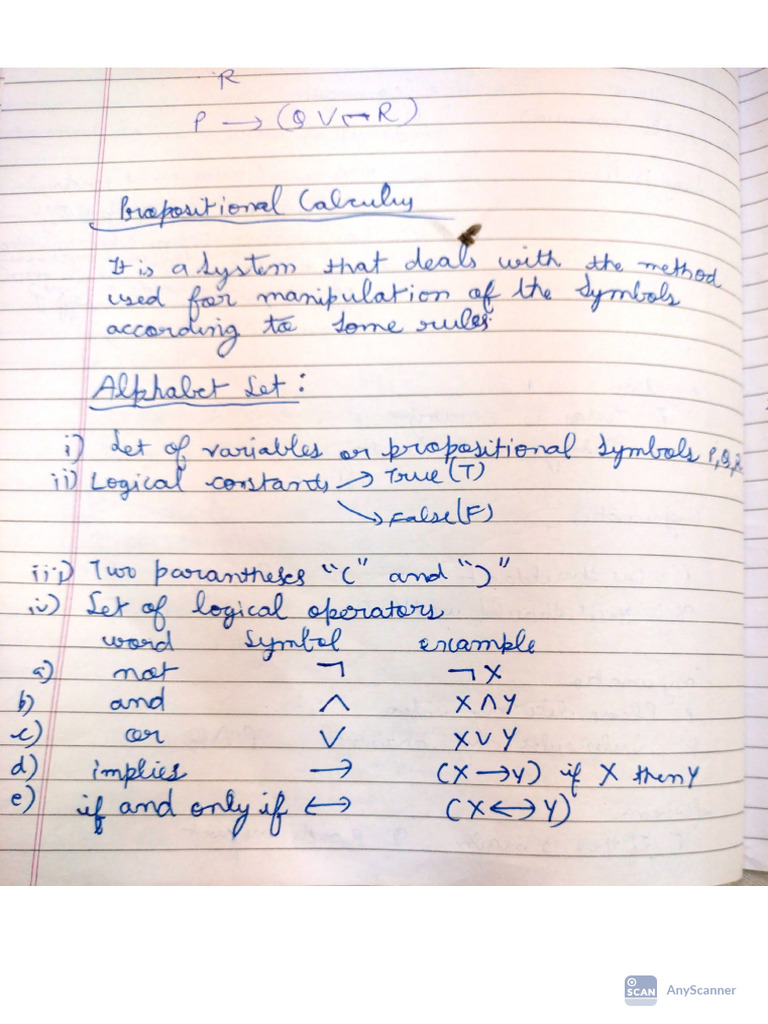 R
P → (Q V ¬ R)
Propositional Calculus
It is a system that deals with the method
used for manipulation of the symbols
according to some rules.
Alphabet Set :
i) Set of variables or propositional symbols P, Q, R
ii) Logical constants → True (T)
↘ False (F)
iii) Two parantheses "(" and ")"
iv) Set of logical operators
word symbol example
a) not ¬ ¬ X
b) and ∧ X ∧ Y
c) or ∨ X ∨ Y
d) implies → (X → Y) if X then Y
e) if and only if ↔ (X ↔ Y)
SCAN AnyScanner